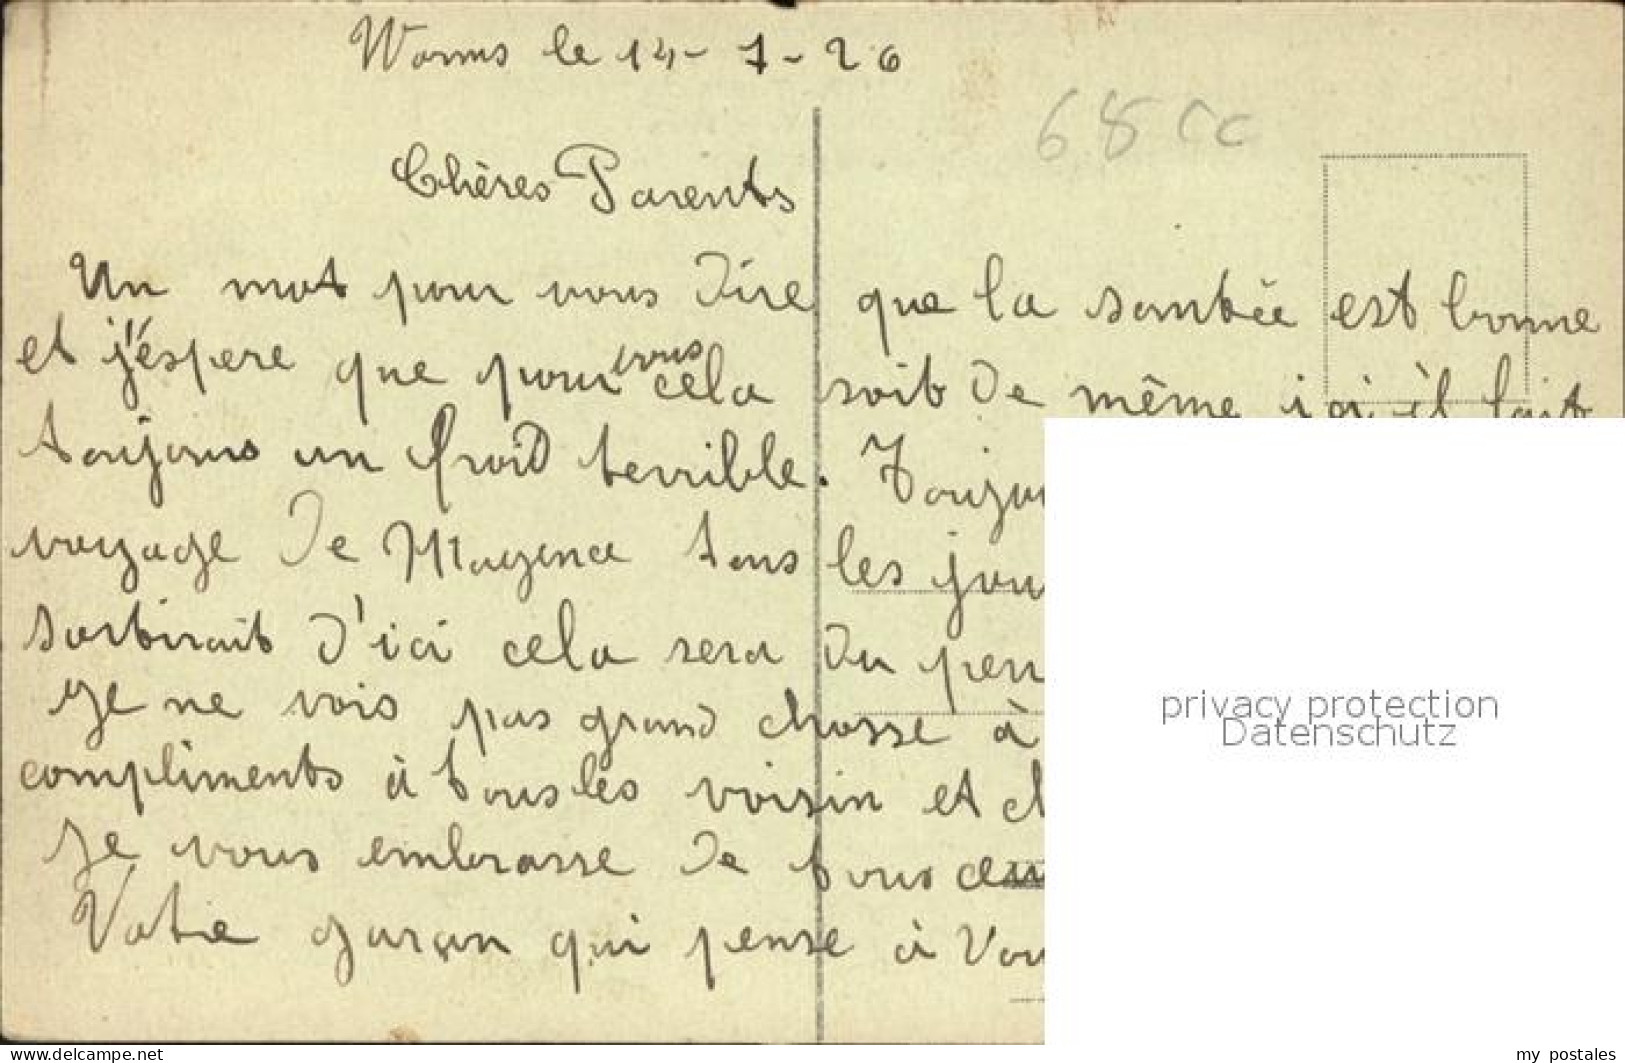 Worms le 14-1-26
68 cc
Chères Parents
Un mot pour vous dire que la santée est bonne
et j'éspere que pour vous cela soit de même ici il fait
toujours un froid terrible. Toujou
voyage de Mayence tous les jou
sortirait d'ici cela sera du peu
Je ne vois pas grand chosse à
compliments à tous les voisin et ch
Je vous embrasse de tous
Votre garçon qui pense à Vou
privacy protection
Datenschutz
www.delcampe.net
my_postales